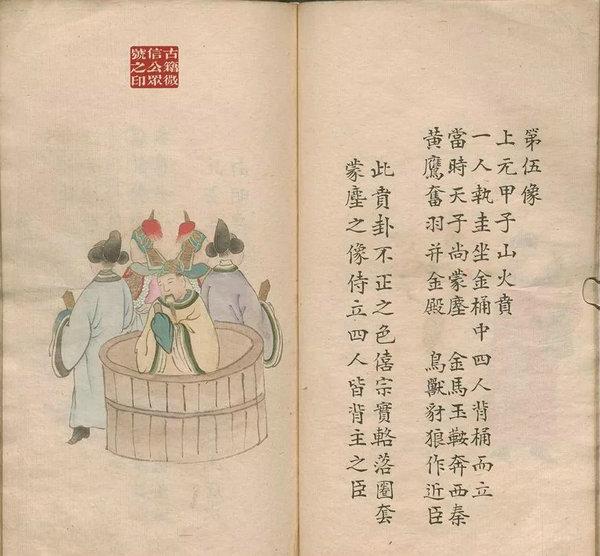 第伍像
上元甲子山火賁
一人執圭坐金桶中四人背桶而立
當時天子尚蒙塵 金馬玉鞍奔西秦
黃鷹奮羽并金殿 鳥獸豺狼作近臣
此賁卦不正之色僖宗實輅落圈套
蒙塵之像侍立四人皆背主之臣
古籍微
信公眾
號之印